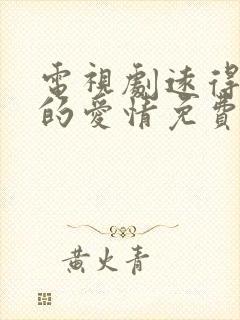 電視劇速得
的愛情免費
黃火青